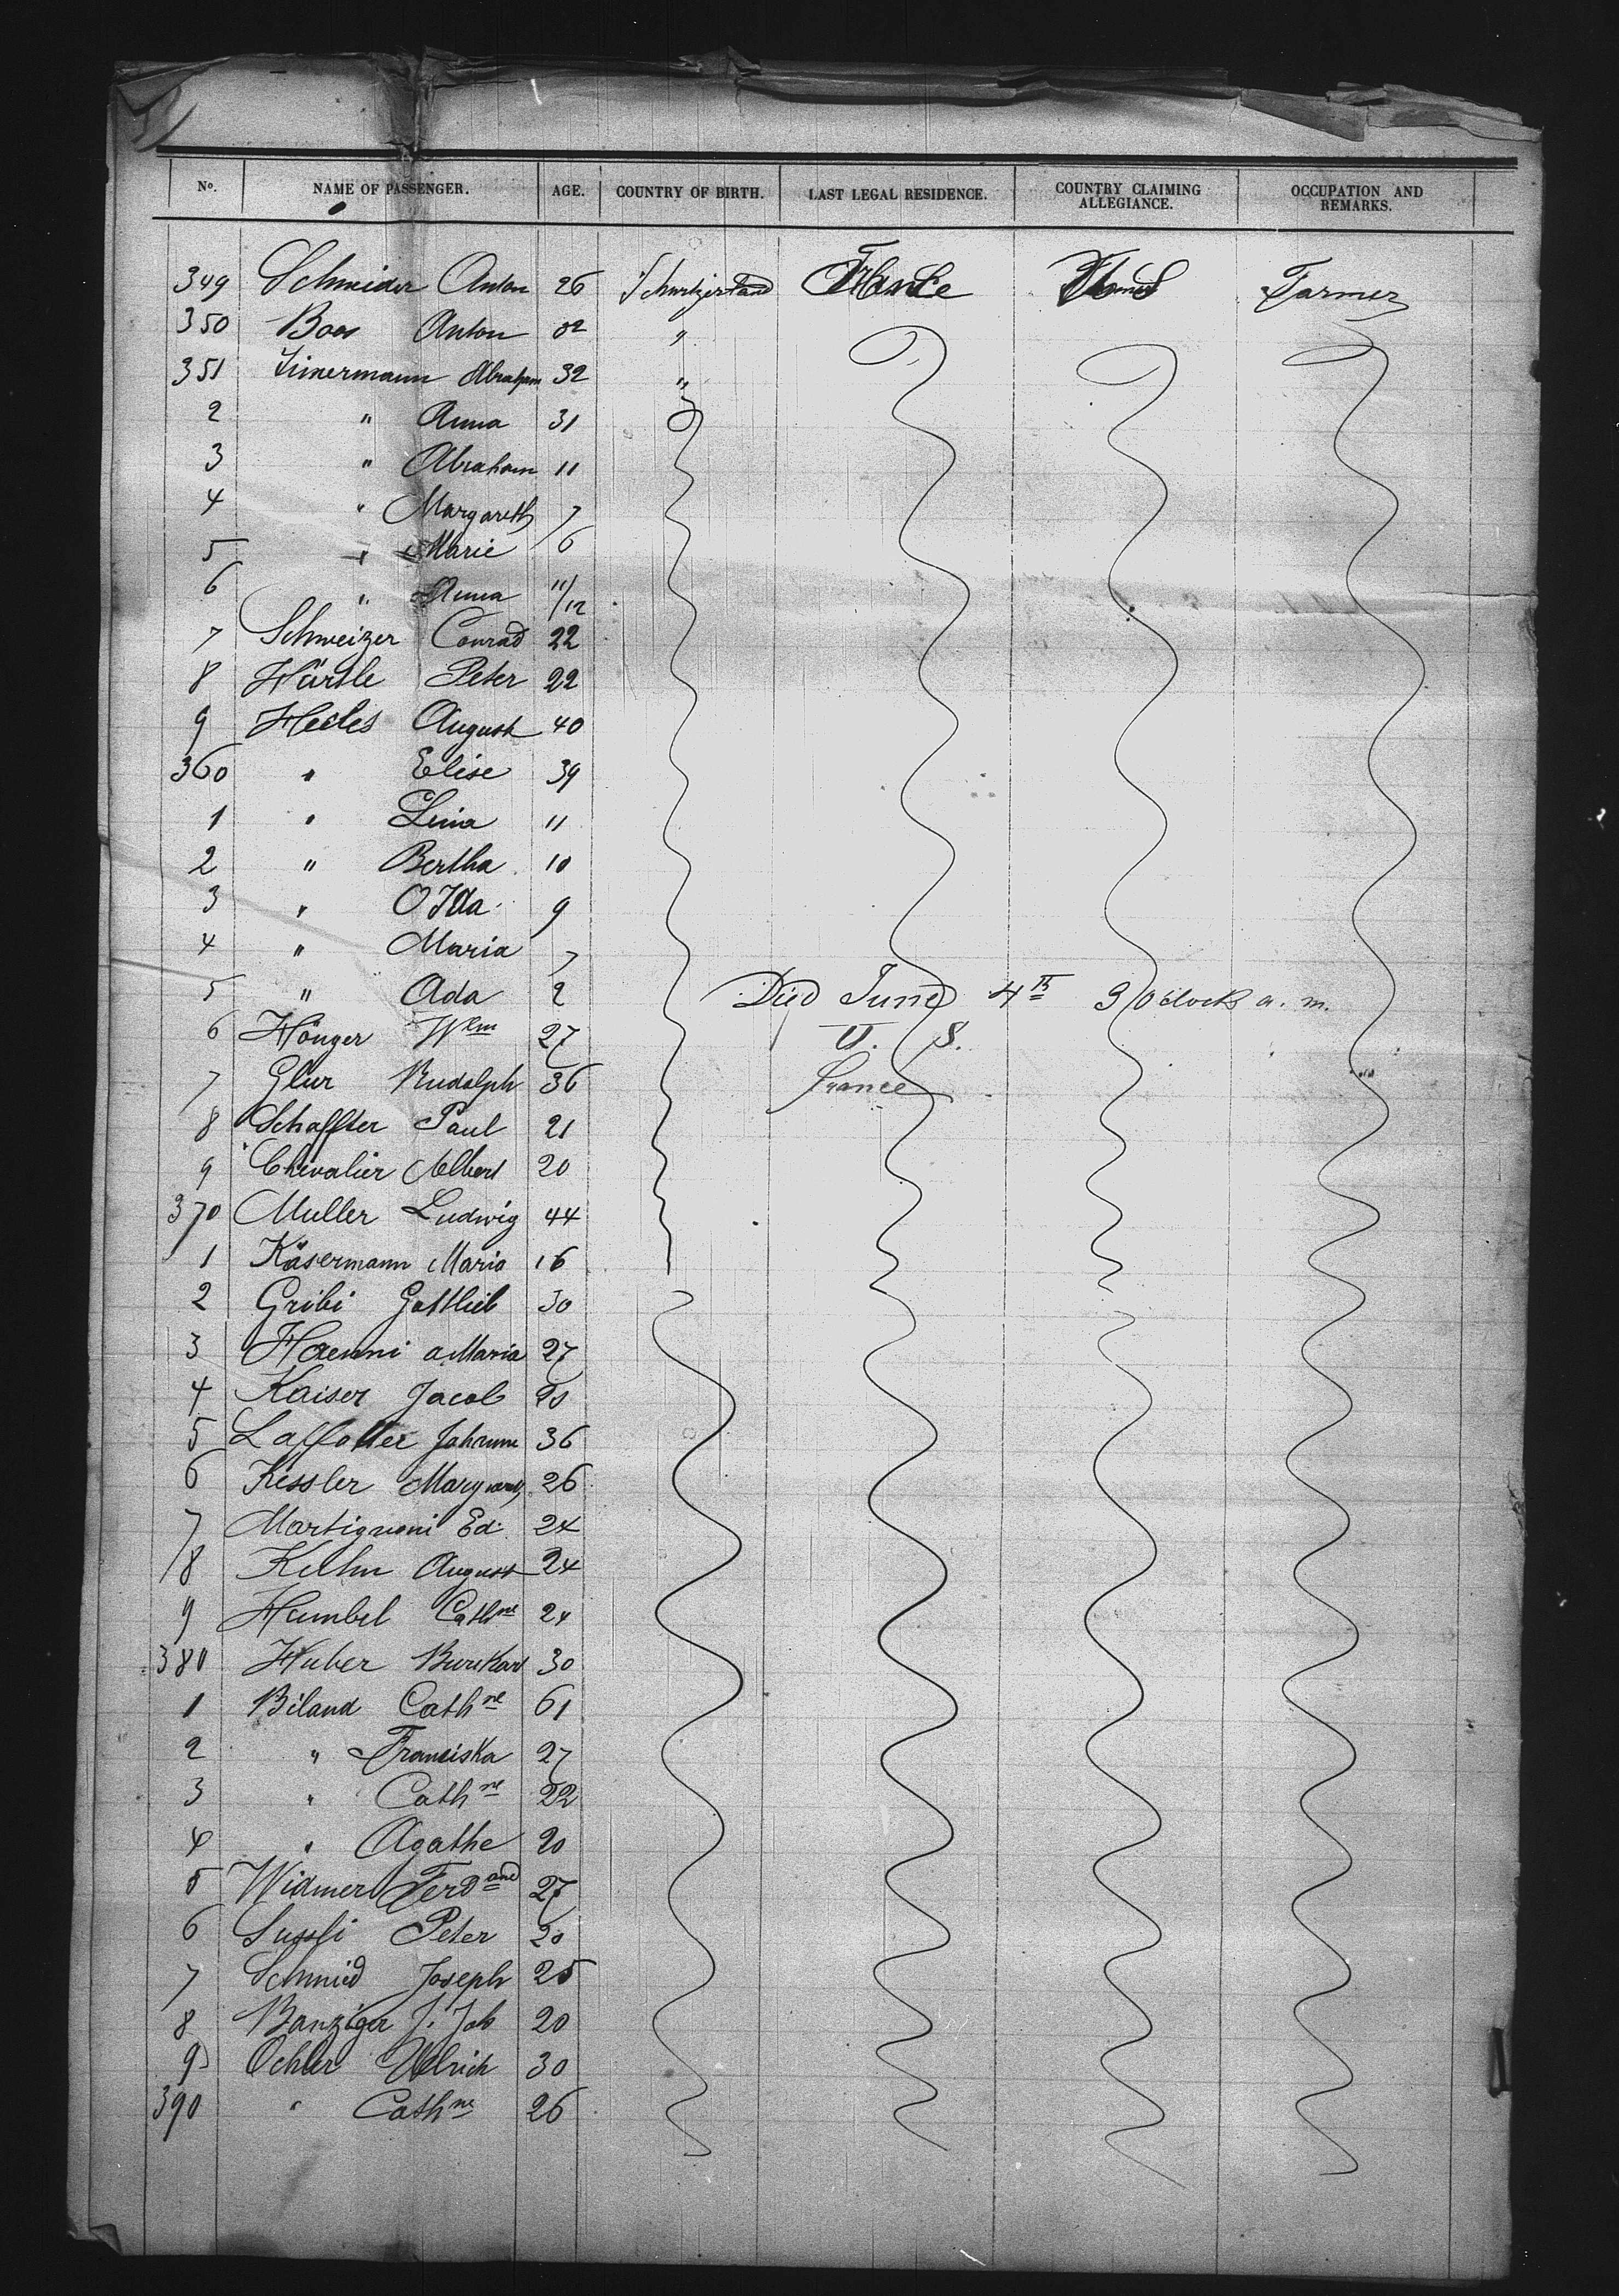 No. NAME OF PASSENGER. AGE. COUNTRY OF BIRTH. LAST LEGAL RESIDENCE. COUNTRY CLAIMING ALLEGIANCE. OCCUPATION AND REMARKS.
349 Schneider Anton 26 Schwitzerland Farmer
350 Boos Anton "
351 Zimermann Abraham 32 "
2 " Anna 31
3 " Abraham 11
4 " Margareth 7
5 " Marie 6
6 " Anna 11/12
7 Schweizer Conrad 22
8 Härtle Peter 22
9 August 40
360 " Elise 39
1 " Lina 11
2 " Bertha 10
3 " Ida 9
4 " Maria 7
5 " Ada 2 Died June 4th 3 Oclock a. m.
6 Hönger Wlm 27 U. S.
7 Glur Rudolph 36 france
8 Schaffter Paul 21
9 Chevalier Albert 20
370 Muller Ludwig 44
1 Käsermann Maria 16
2 Gribi Gottlieb 30
3 Haenni a Maria 27
4 Kaiser Jacob
5 36
6 Kessler 26
7 Martignoni Ed. 24
8 August 24
9 Humbel Cathne 24
380 Huber Burkart 30
1 Biland Cathne 61
2 " Franciska 27
3 " Cathne 22
4 " Agathe 20
5 Widmer Ferdand 27
6 Peter 20
7 Schmid Joseph 25
8 Banziger J. Job 20
9 Ochler Ulrich 30
390 " Cathne 26